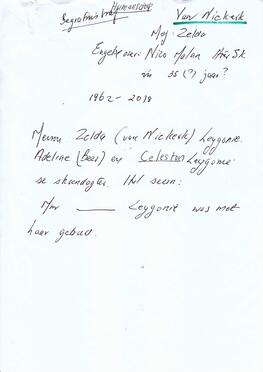 Begrafnis brief Hermanskop
Van Nickerk
Mej. Zelda
Engels onni Nico Malan Hoër Sk
vir 35 (?) jaar?
1962 - 2019
Mevrou Zelda (van Nickerk) Leygonie.
Adeline (Beer) en Celeston Leygonie
se skoondogter. Hul seun:
Mnr ____ Leygonie was met
haar getroud.